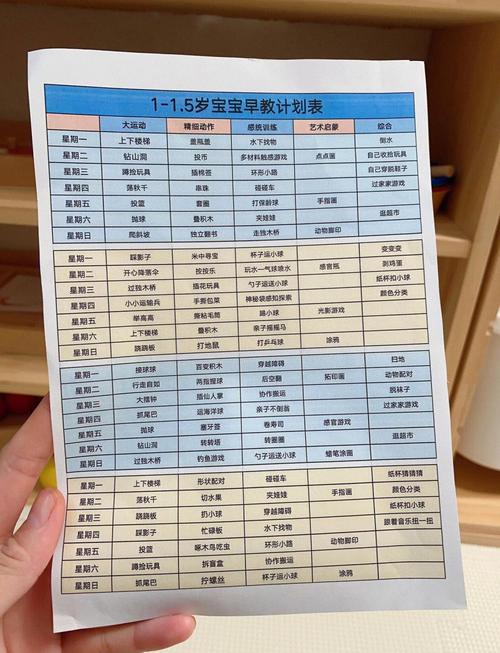 1-1.5岁宝宝早教计划表
大运动 精细动作 感统训练 艺术启蒙 综合
星期一 上下楼梯 盖瓶盖 水下找物 倒水
星期二 钻山洞 投币 多材料触感游戏 点点画 自己收捡玩具
星期三 蹲捡玩具 插棉签 环形小路 自己穿脱鞋子
星期四 荡秋千 串珠 碰碰车 过家家游戏
星期五 投篮 套圈 打保龄球 手指画
星期六 抛球 叠积木 夹娃娃 逛超市
星期日 爬斜坡 独立翻书 走独木桥 动物脚印
星期一 踩影子 米中寻宝 杯子运小球 变变变
星期二 开心降落伞 按按乐 玩水—气球喷水 感官瓶 剥鸡蛋
星期三 过独木桥 插花玩具 勺子运送小球 纸杯扣小球
星期四 小小运输兵 手撕包菜 神秘袋感知探索 颜色分类
星期五 举高高 撕粘毛筒 踢小球 光影游戏
星期六 上下楼梯 叠积木 亲子摇摇马
星期日 跷跷板 打地鼠 打乒乓球 涂鸦
星期一 接球球 百变积木 穿越障碍 扫地
星期二 行走自如 两指捏球 后空翻 拓印画 动物配对
星期三 大摆钟 插仙人掌 协作搬运 脱袜子
星期四 抓尾巴 运海洋球 亲子不倒翁 过家家游戏
星期五 抛球 塞牙签 卷寿司 感官游戏
星期六 钻山洞 转转塔 转圈圈 逛超市
星期日 过独木桥 钓鱼游戏 勺子运送小球 蜡笔涂画
星期一 上下楼梯 形状配对 碰碰车 纸杯猜猜猜
星期二 荡秋千 切水果 夹娃娃 手指画 颜色分类
星期三 跷跷板 扔小球 穿越障碍 纸杯扣小球
星期四 踩影子 忙碌板 水下找物 跟着音乐扭一扭
星期五 投篮 啄木鸟吃虫 环形小路 动物脚印
星期六 蹲捡玩具 拆盲盒 协作搬运
星期日 抓尾巴 拧螺丝 杯子运小球 涂鸦